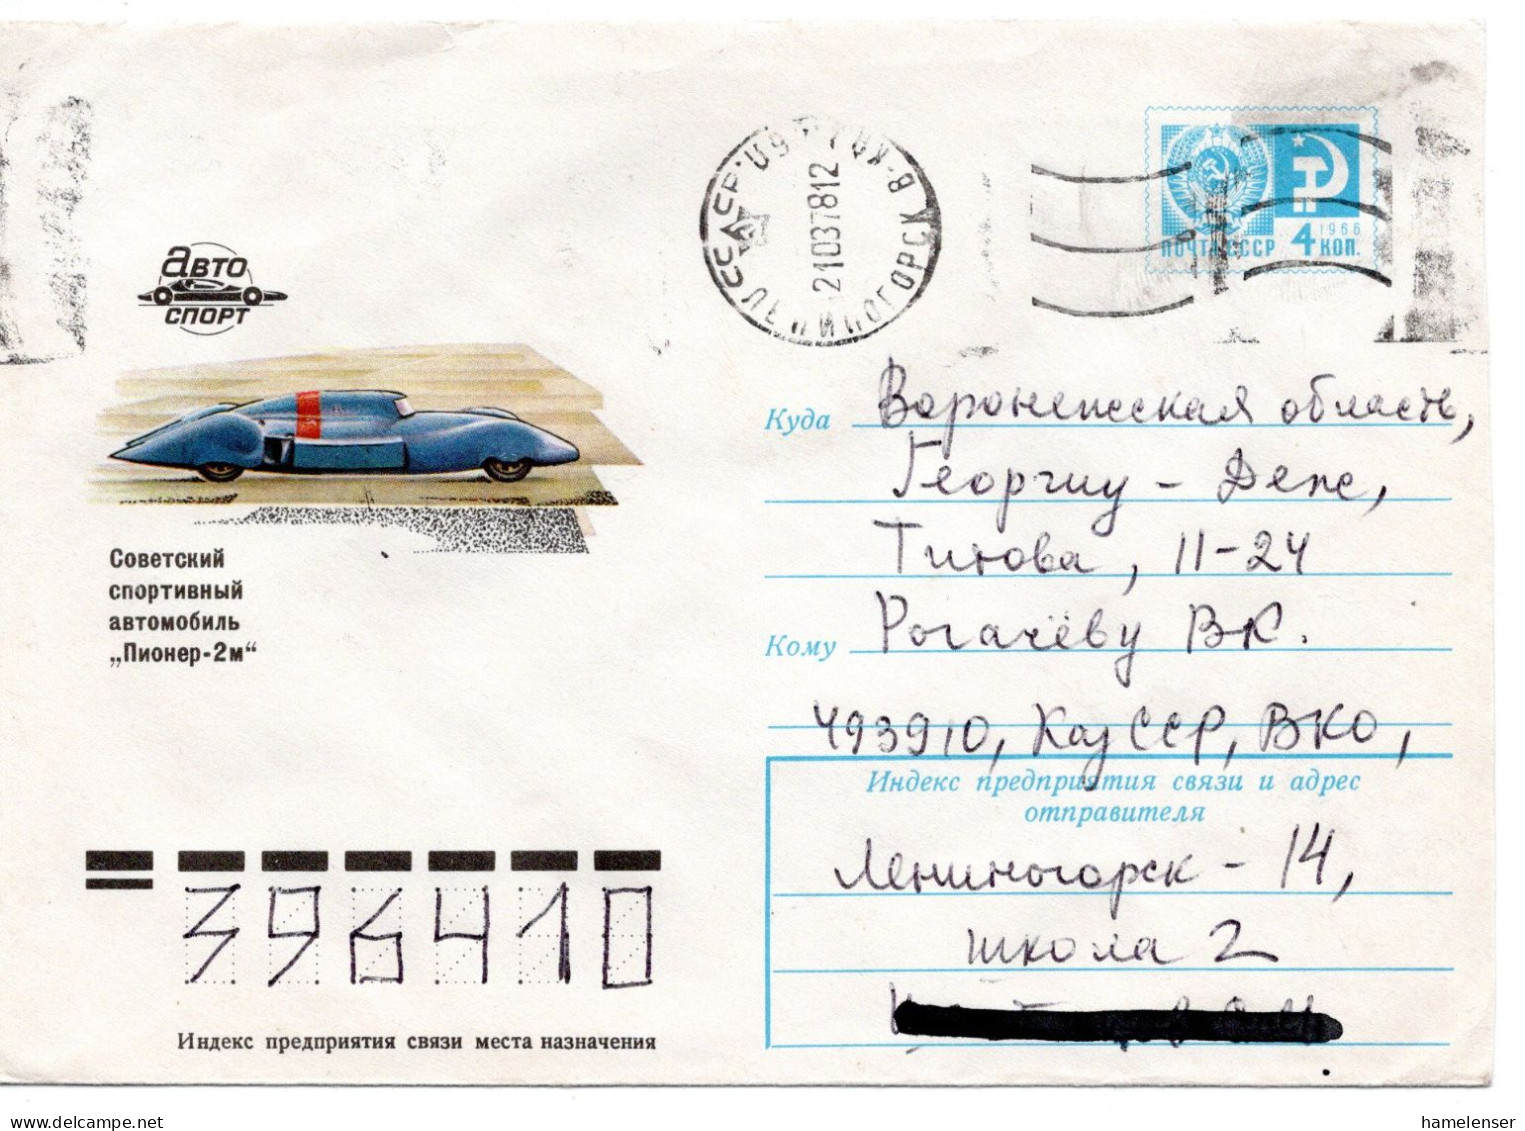 Авто
спорт
СССР
ЛЕНИНОГОРСК В-КАЗ
21037812
1966
4
ПОЧТА СССР
КОП.
Советский
спортивный
автомобиль
„Пионер-2м“
Куда Воронежская область,
Георгиу - Деж,
Титова, 11-24
Кому Рогачёву В.К.
493910, КазССР, ВКО,
Индекс предприятия связи и адрес
отправителя
Лениногорск - 14,
школа 2
396410
Индекс предприятия связи места назначения
hamelenser